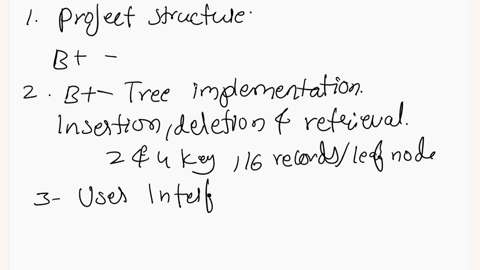 1. Project structure.
B+ -
2. B+- Tree implementation.
Insertion, deletion & retrieval.
2 & 4 key, 16 records/leaf node
3- Uses Interf